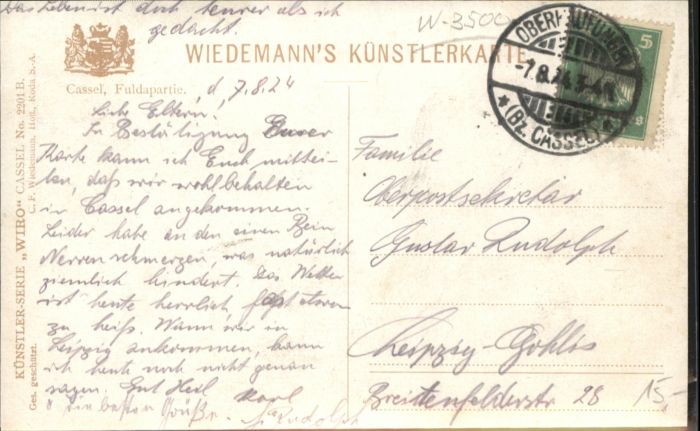 Das Leben ist doch teurer als ich
gedacht.
W-3500
WIEDEMANN'S KÜNSTLERKARTE
Cassel, Fuldapartie.
d 7.8.24
Liebe Eltern!
In Bestätigung Eurer
Karte kann ich Euch mittei-
len, daß wir wohlbehalten
in Cassel angekommen.
Leider habe an den einen Bein
Nervenschmerzen, was natürlich
ziemlich hindert. Das Wetter
ist heute herrlich, fast etwas
zu heiß. Wann wir in
Leipzig ankommen, kann
ich heute noch nicht genau
sagen. Gut Heil Karl
die besten Grüße
Rudolph
KÜNSTLER-SERIE „WIRO“ CASSEL, No. 2201 B.
Ges. geschützt. C. F. Wiedemann, Hofl., Roda S.-A.
OBERKAUFUNGEN
-7.8.24
(BZ. CASSEL)
5
Familie
Oberpostsekretär
Gustav Rudolph
Leipzig-Gohlis
Breitenfelderstr 28
15,-